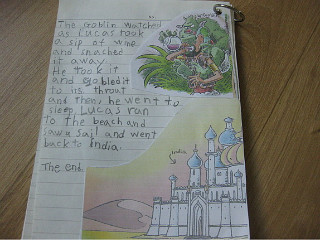 The Goblin watched
as Lucas took
a sip of wine
and snached
it away.
He took it
and gobbled it
to its throat
and then he went to
sleep. Lucas ran
to the beach and
saw a sail and went
back to India.
The end
India